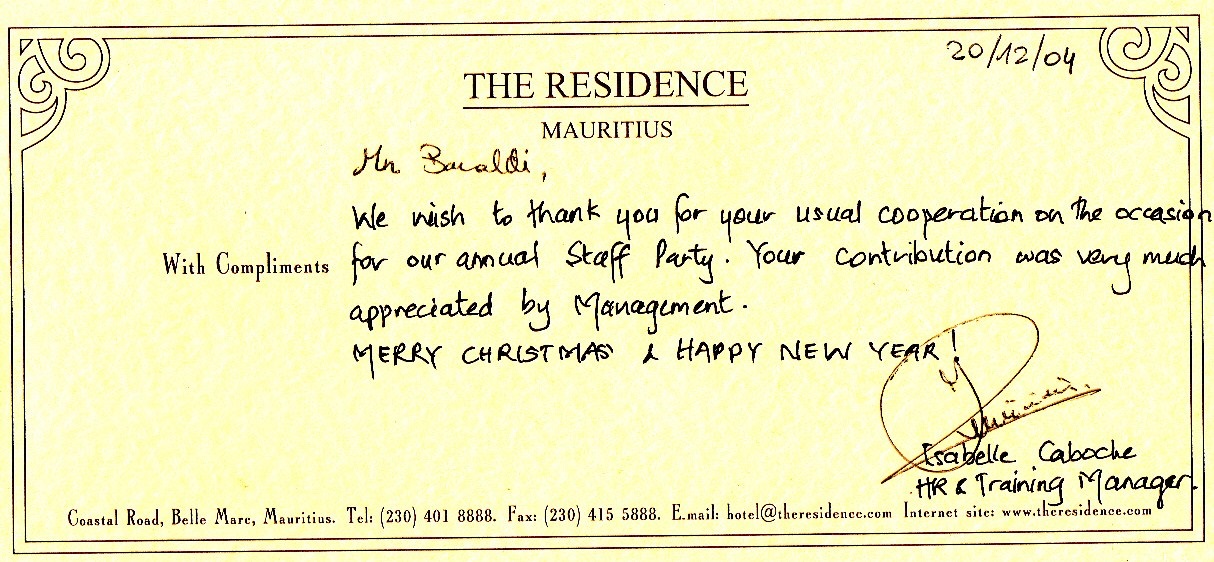 20/12/04
THE RESIDENCE
MAURITIUS
Mr. Baraldi,
We wish to thank you for your usual cooperation on the occasion
With Compliments
for our annual Staff Party. Your contribution was very much
appreciated by Management.
MERRY CHRISTMAS & HAPPY NEW YEAR!
Isabelle Caboche
HR & Training Manager.
Coastal Road, Belle Mare, Mauritius. Tel: (230) 401 8888. Fax: (230) 415 5888. E.mail: hotel@theresidence.com Internet site: www.theresidence.com